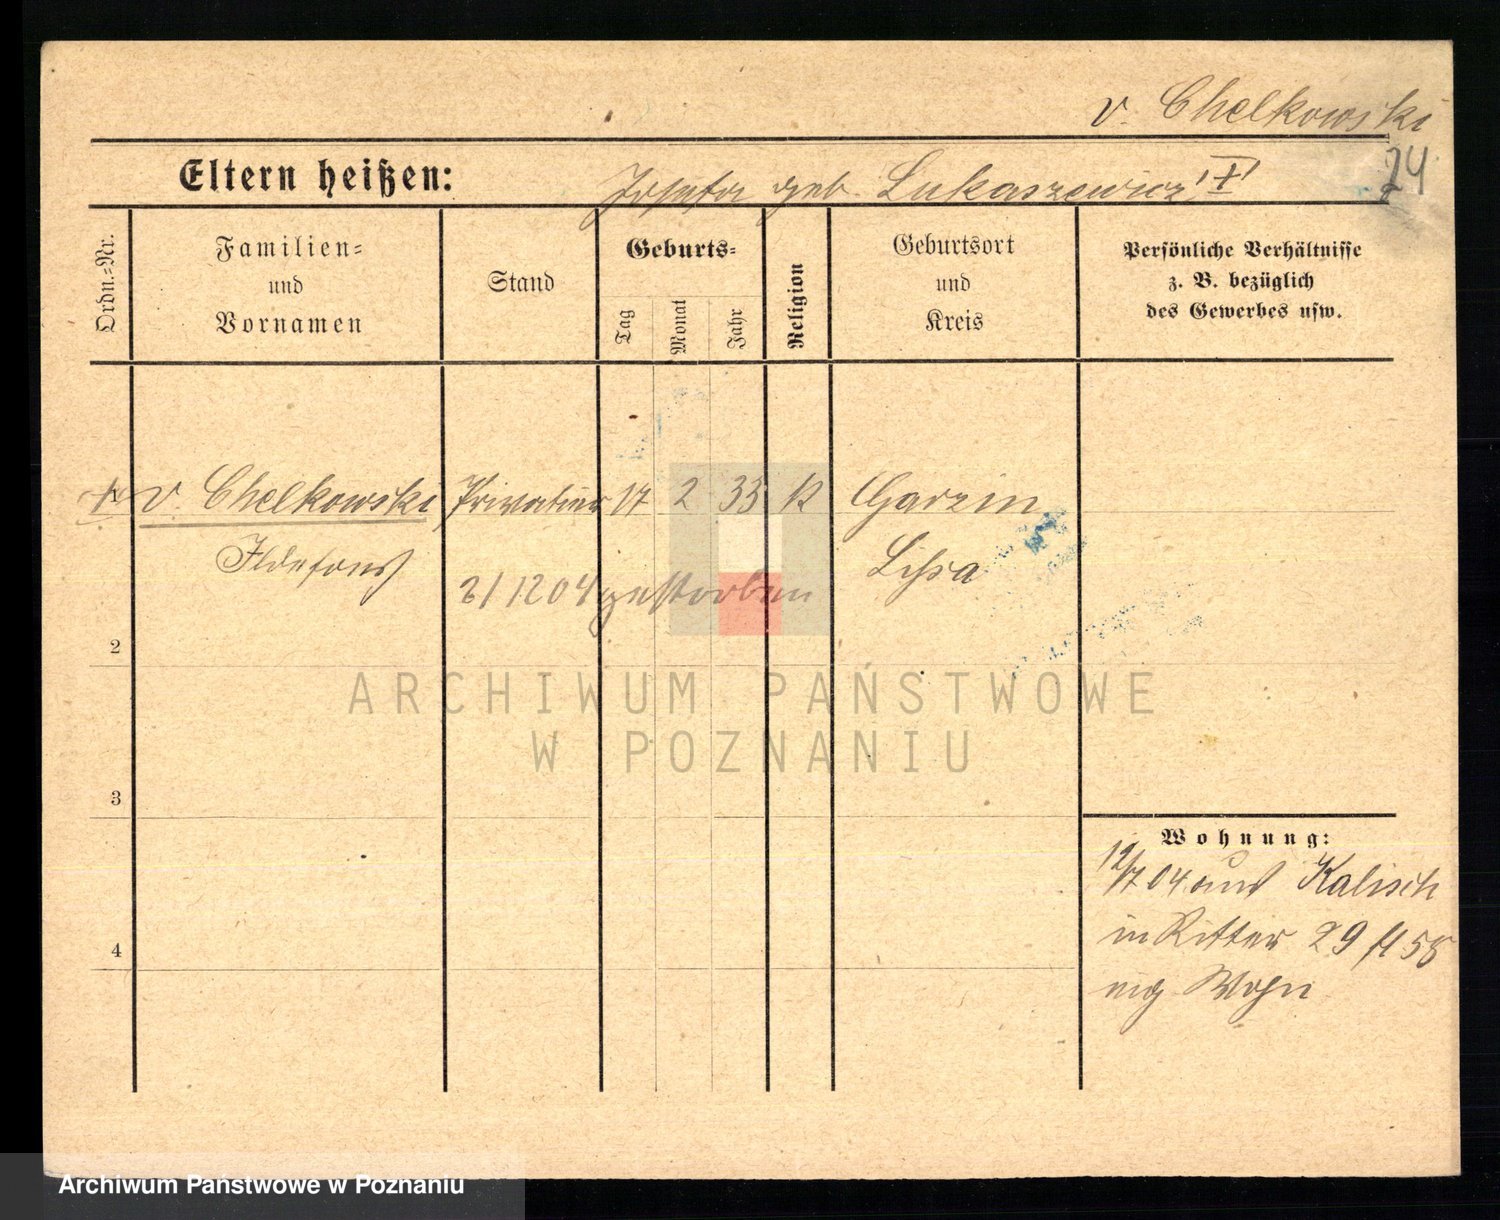 v. Chelkowski
Eltern heißen: Josefa geb. Lukaszewicz
24
Ordn.-Nr.
Familien-
und
Vornamen
Stand
Geburts-
Tag
Monat
Jahr
Religion
Geburtsort
und
Kreis
Persönliche Verhältnisse
z. B. bezüglich
des Gewerbes usw.
1 v. Chelkowski Privatier 17 2 33 K Garzin
Ildefons Lissa
2/12 04 gestorben
2
ARCHIWUM PAŃSTWOWE
W POZNANIU
3
Wohnung:
12/7 04 aus Kalisch
in Ritter 29
eig. Wohn
4
Archiwum Państwowe w Poznaniu